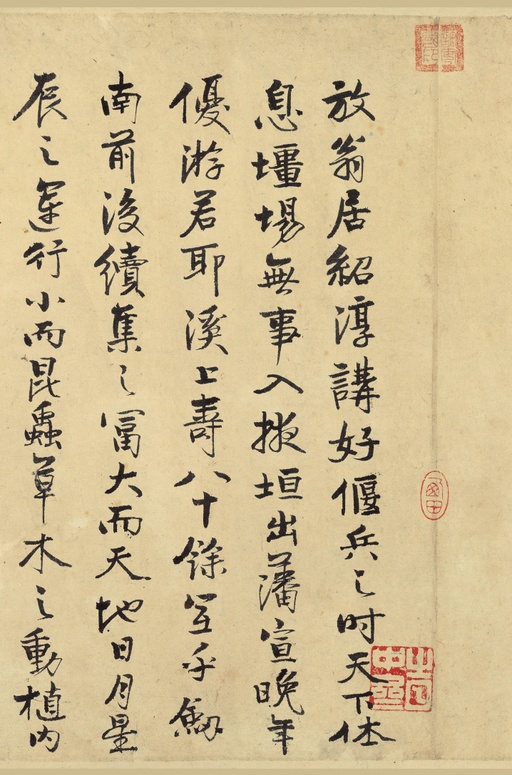 放翁居紹淳講好偃兵之時天下休
息壃埸無事入掖垣出藩宣晚年
優游若耶溪上壽八十餘宜乎劔
南前後續集之富大而天地日月星
辰之運行小而昆蟲草木之動植內